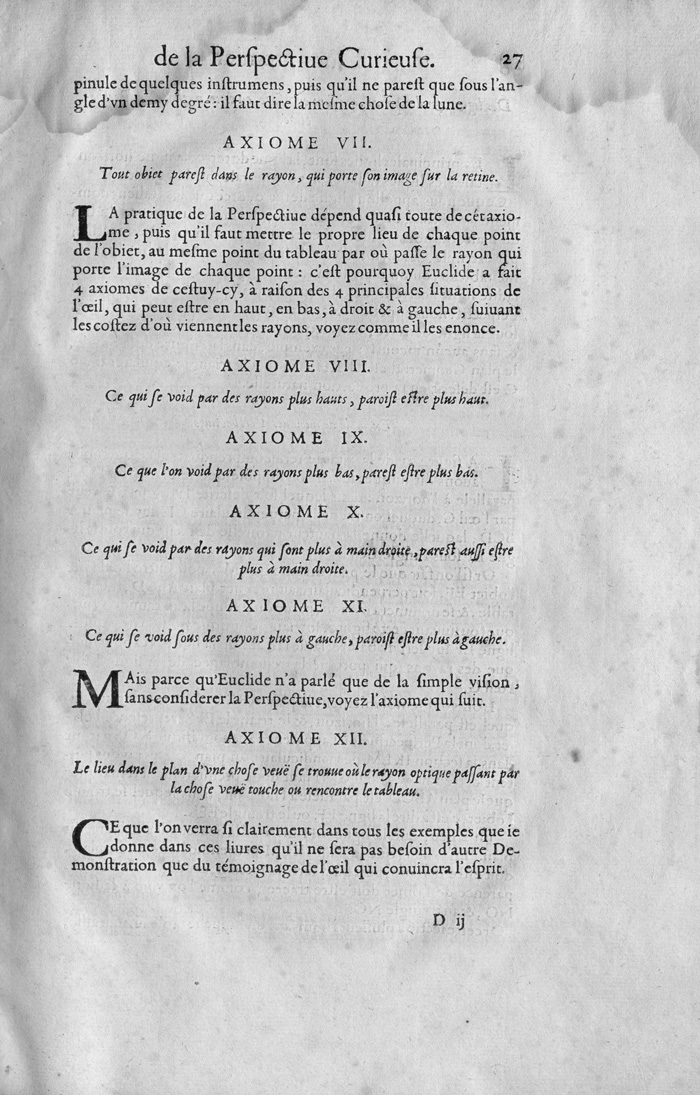 de la Perſpectiue Curieuſe. 27
pinule de quelques inſtrumens, puis qu'il ne pareſt que ſous l'an-
gle d'vn demy degré: il faut dire la meſme choſe de la lune.
AXIOME VII.
Tout obiet pareſt dans le rayon, qui porte ſon image ſur la retine.
LA pratique de la Perſpectiue dépend quaſi toute de cét axio-
me, puis qu'il faut mettre le propre lieu de chaque point
de l'obiet, au meſme point du tableau par où paſſe le rayon qui
porte l'image de chaque point: c'eſt pourquoy Euclide a fait
4 axiomes de ceſtuy-cy, à raiſon des 4 principales ſituations de
l'œil, qui peut eſtre en haut, en bas, à droit & à gauche, ſuiuant
les coſtez d'où viennent les rayons, voyez comme il les enonce.
AXIOME VIII.
Ce qui ſe void par des rayons plus hauts, paroiſt eſtre plus haut.
AXIOME IX.
Ce que l'on void par des rayons plus bas, pareſt eſtre plus bas.
AXIOME X.
Ce qui ſe void par des rayons qui ſont plus à main droite, pareſt auſſi eſtre
plus à main droite.
AXIOME XI.
Ce qui ſe void ſous des rayons plus à gauche, paroiſt eſtre plus à gauche.
MAis parce qu'Euclide n'a parlé que de la ſimple viſion,
ſans conſiderer la Perſpectiue, voyez l'axiome qui ſuit.
AXIOME XII.
Le lieu dans le plan d'vne choſe veuë ſe trouue où le rayon optique paſſant par
la choſe veuë touche ou rencontre le tableau.
CE que l'on verra ſi clairement dans tous les exemples que ie
donne dans ces liures qu'il ne ſera pas beſoin d'autre De-
monſtration que du témoignage de l'œil qui conuincra l'eſprit.
D ij